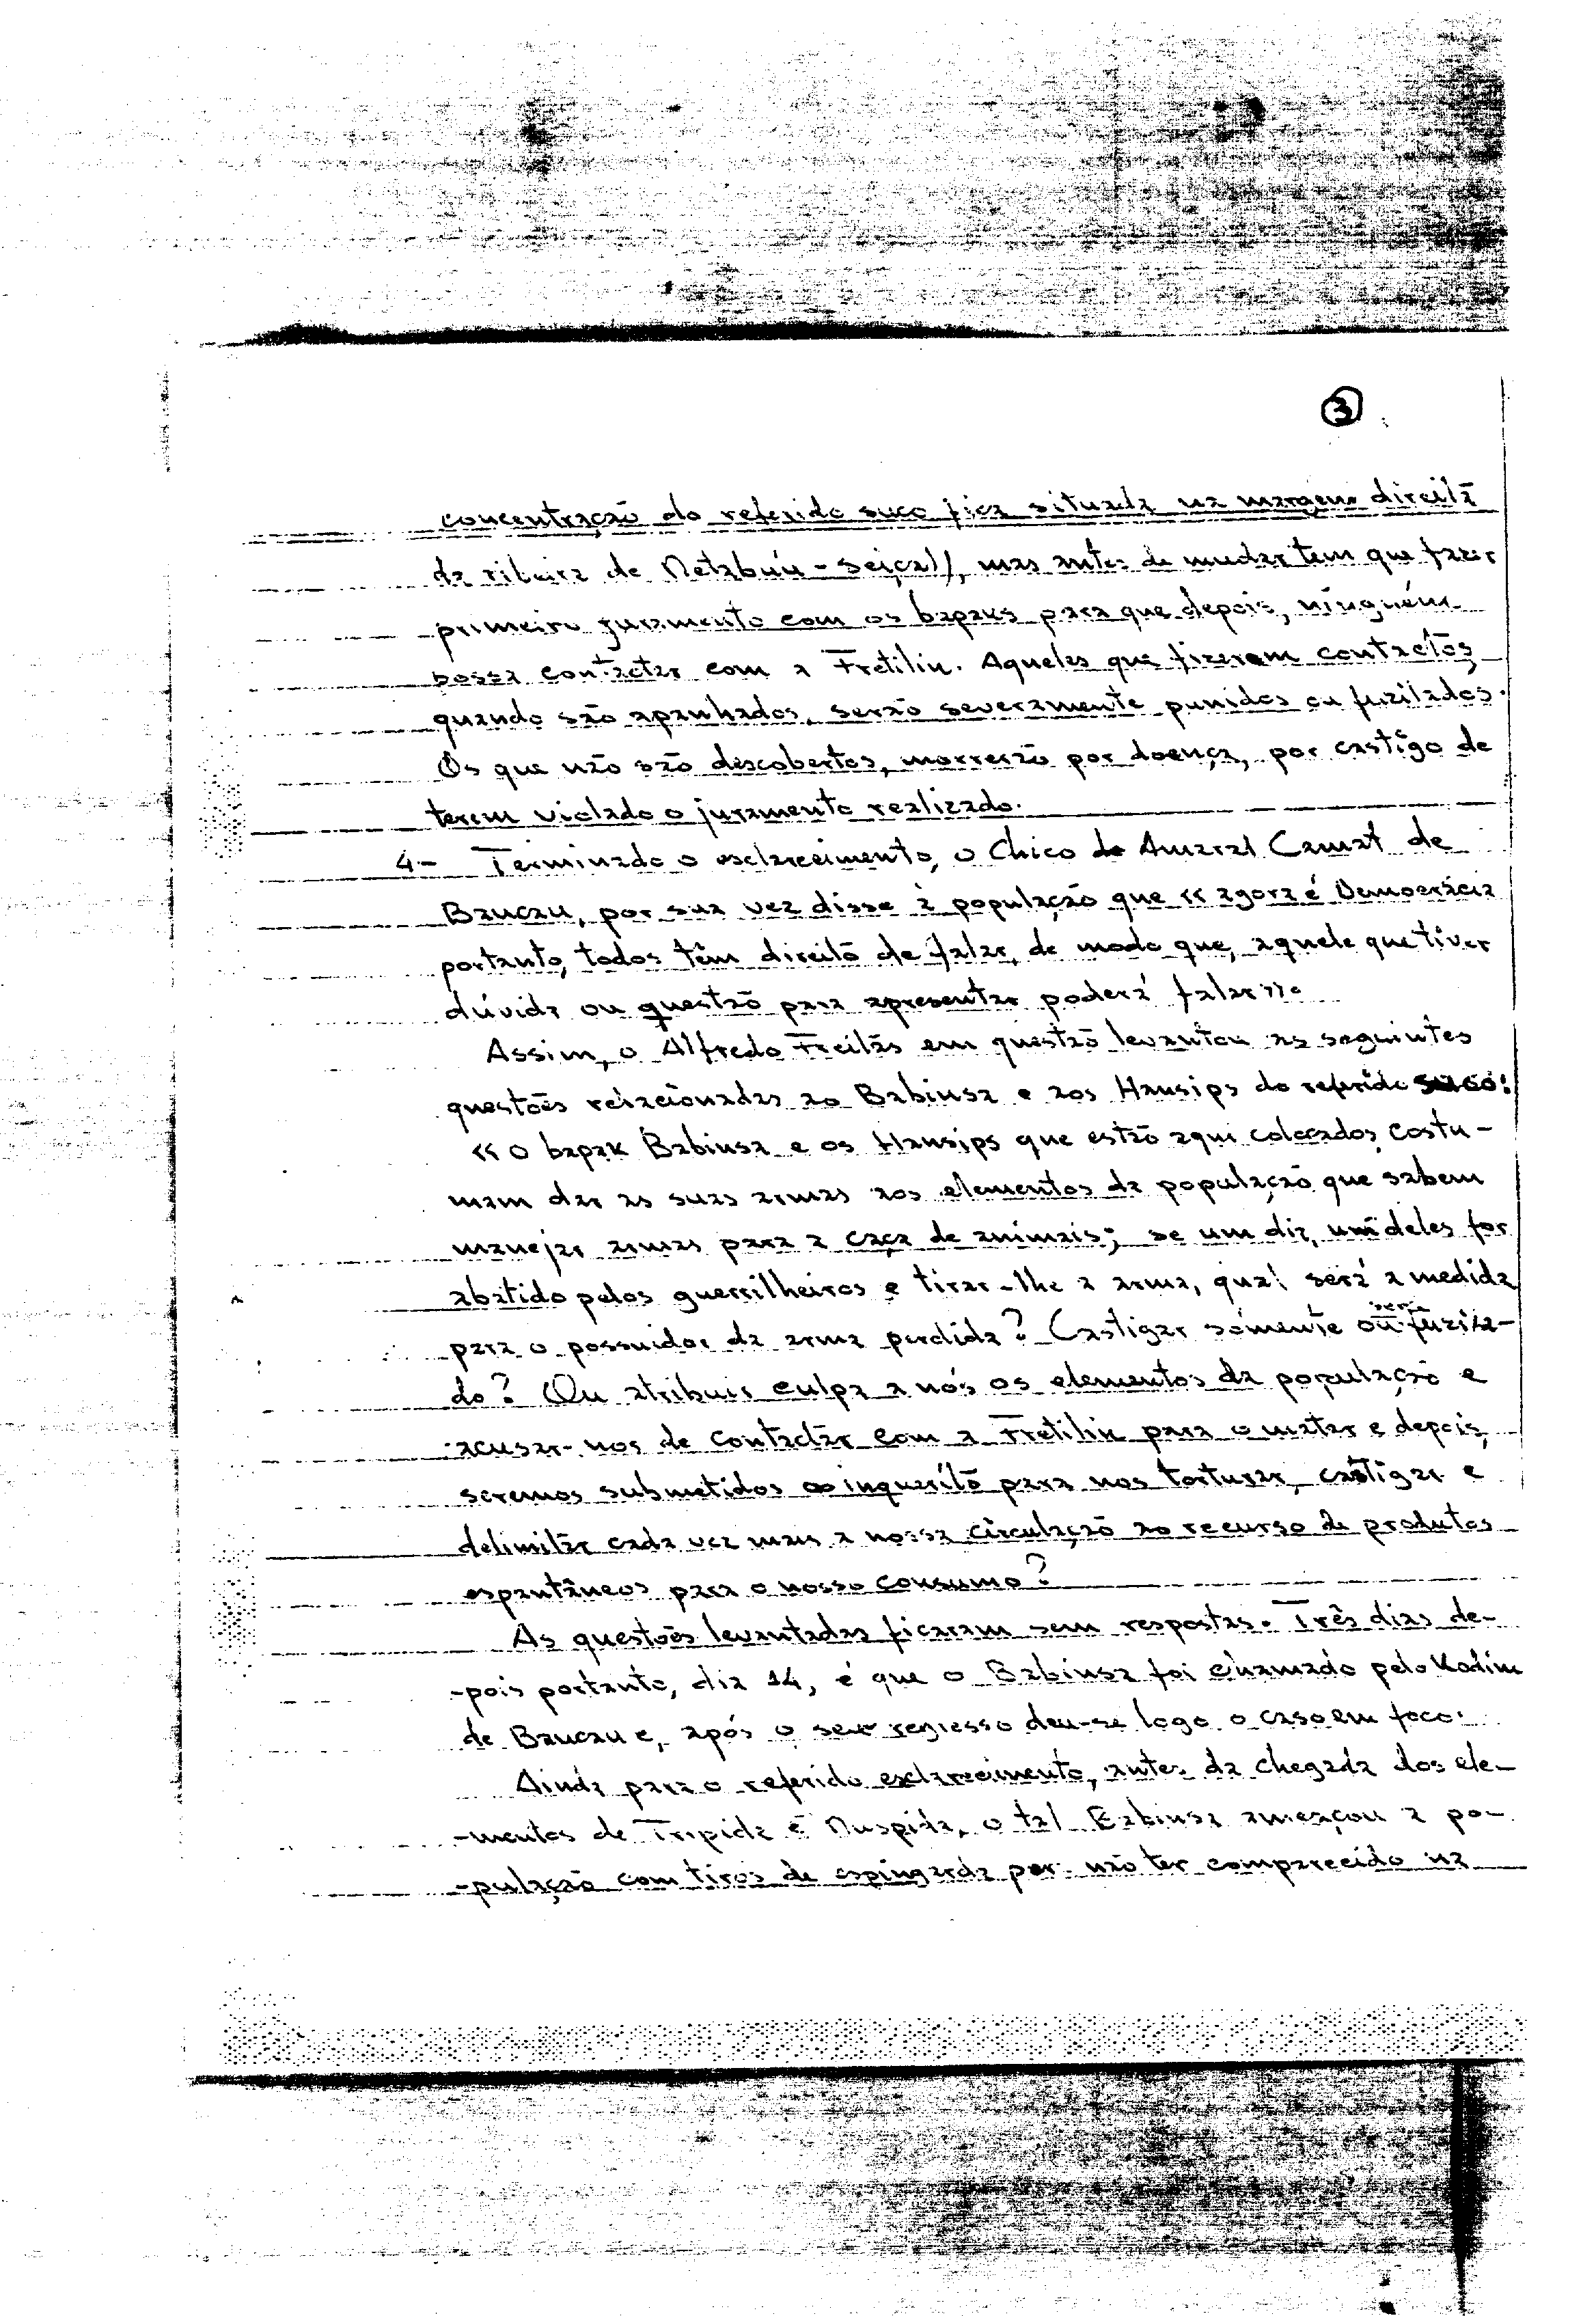 3
concentração do referido suco fica situada na margem direita
da ribeira de Metabuú - Seiçal), mas antes de mudar tem que fazer
primeiro juramento com os bapaks para que depois, ninguém
possa contactar com a Fretilin. Aqueles que fizerem contactos
quando são apanhados, serão severamente punidos ou fuzilados.
Os que não são descobertos, morrerão por doença, por castigo de
terem violado o juramento realizado.
4- Terminado o esclarecimento, o Chico do Amaral Camat de
Baucau, por sua vez disse à população que « agora é Democrácia
portanto, todos têm direito de falar, de modo que, aquele que tiver
dúvida ou questão para apresentar poderá falar».
Assim, o Alfredo Freitas em questão levantou as seguintes
questões relacionadas ao Babinsa e aos Hansips do referido suco:
« O bapak Babinsa e os Hansips que estão aqui colocados, costu-
mam dar as suas armas aos elementos da população que sabem
manejar armas para a caça de animais; se um dia, um deles for
abatido pelos guerrilheiros e tirar-lhe a arma, qual será a medida
para o possuidor da arma perdida? Castigar sómente ou será fuzila-
do? Ou atribuir culpa a nós os elementos da população e
acusar-nos de contactar com a Fretilin para o matar e depois,
seremos submetidos ao inquérito para nos torturar, castigar e
delimitar cada vez mais a nossa circulação ao recurso de produtos
espantâneos para o nosso consumo?
As questões levantadas ficaram sem respostas. Três dias de-
-pois portanto, dia 14, é que o Babinsa foi chamado pelo Kodim
de Baucau e, após o seu regresso deu-se logo o caso em foco.
Ainda para o referido esclarecimento, antes da chegada dos ele-
-mentos de Tripida e Muspida, o tal Babinsa ameaçou a po-
-pulação com tiros de espingarda por não ter comparecido na